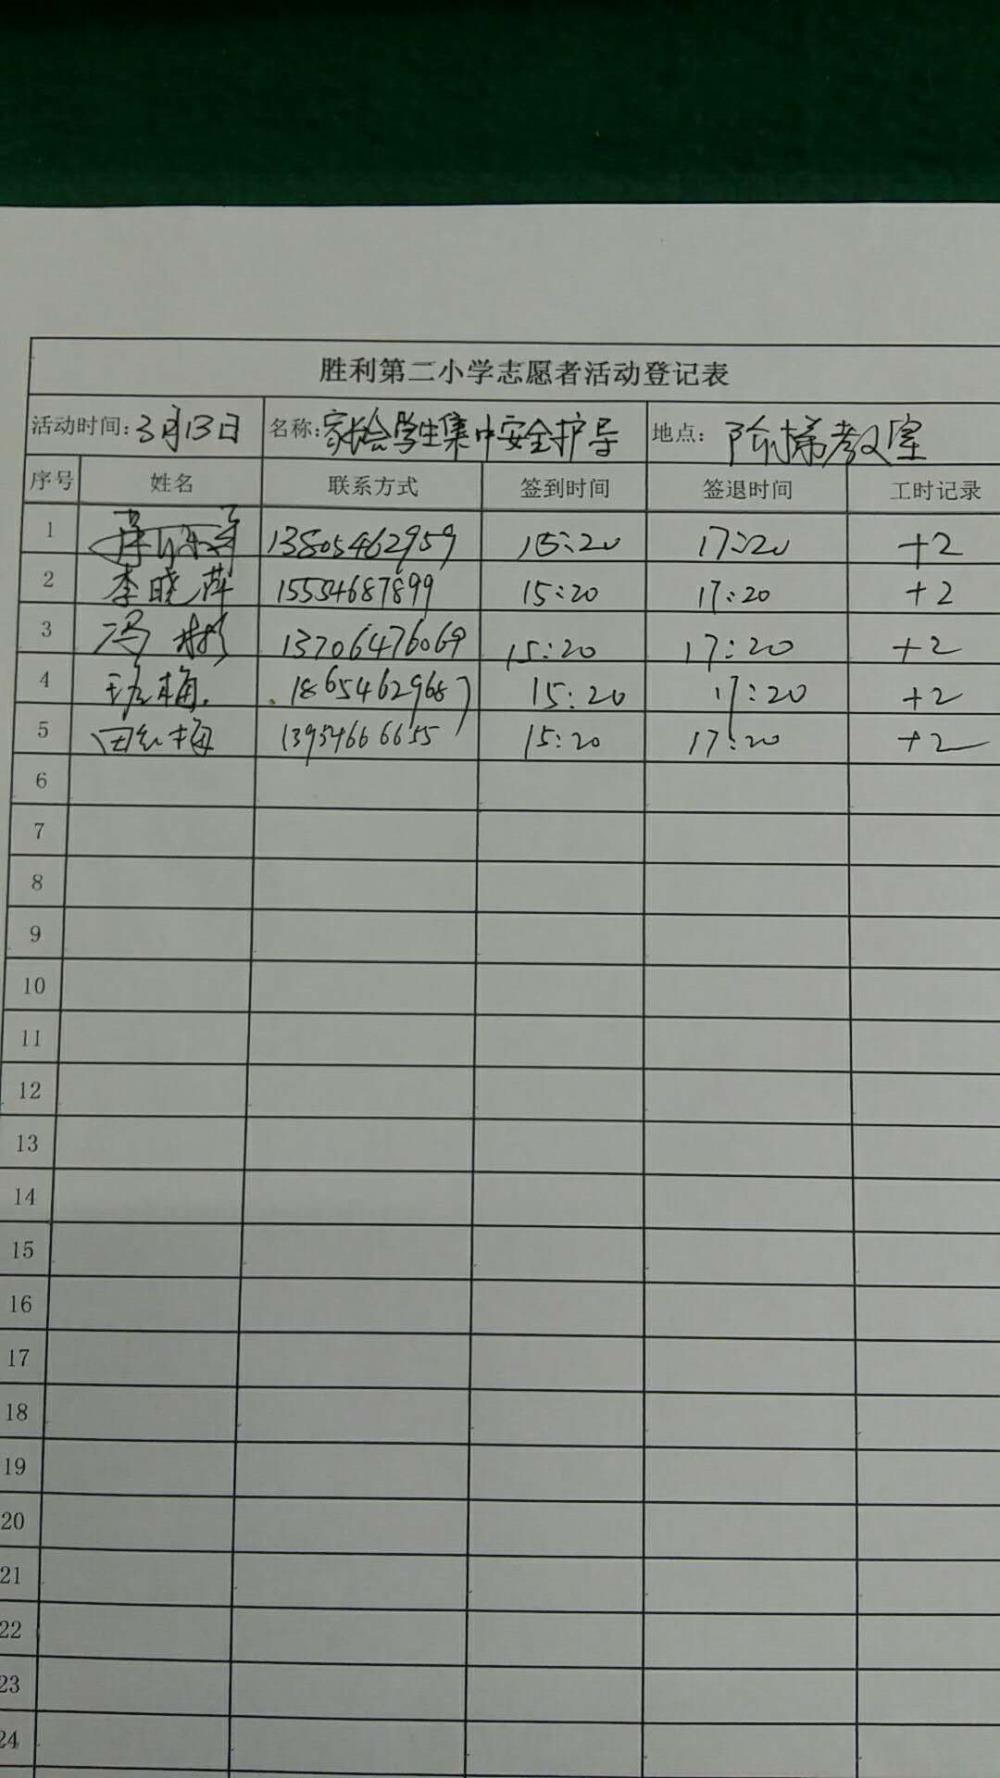 胜利第二小学志愿者活动登记表
活动时间:3月13日 名称:家长会学生集中安全护导 地点:阶梯教室
序号 姓名 联系方式 签到时间 签退时间 工时记录
1 13805462959 15:20 17:20 +2
2 李晓萍 15554687899 15:20 17:20 +2
3 冯彬 13706476069 15:20 17:20 +2
4 梅. 18654629687 15:20 17:20 +2
5 田红梅 13934666655 15:20 17:20 +2
6
7
8
9
10
11
12
13
14
15
16
17
18
19
20
21
22
23
24